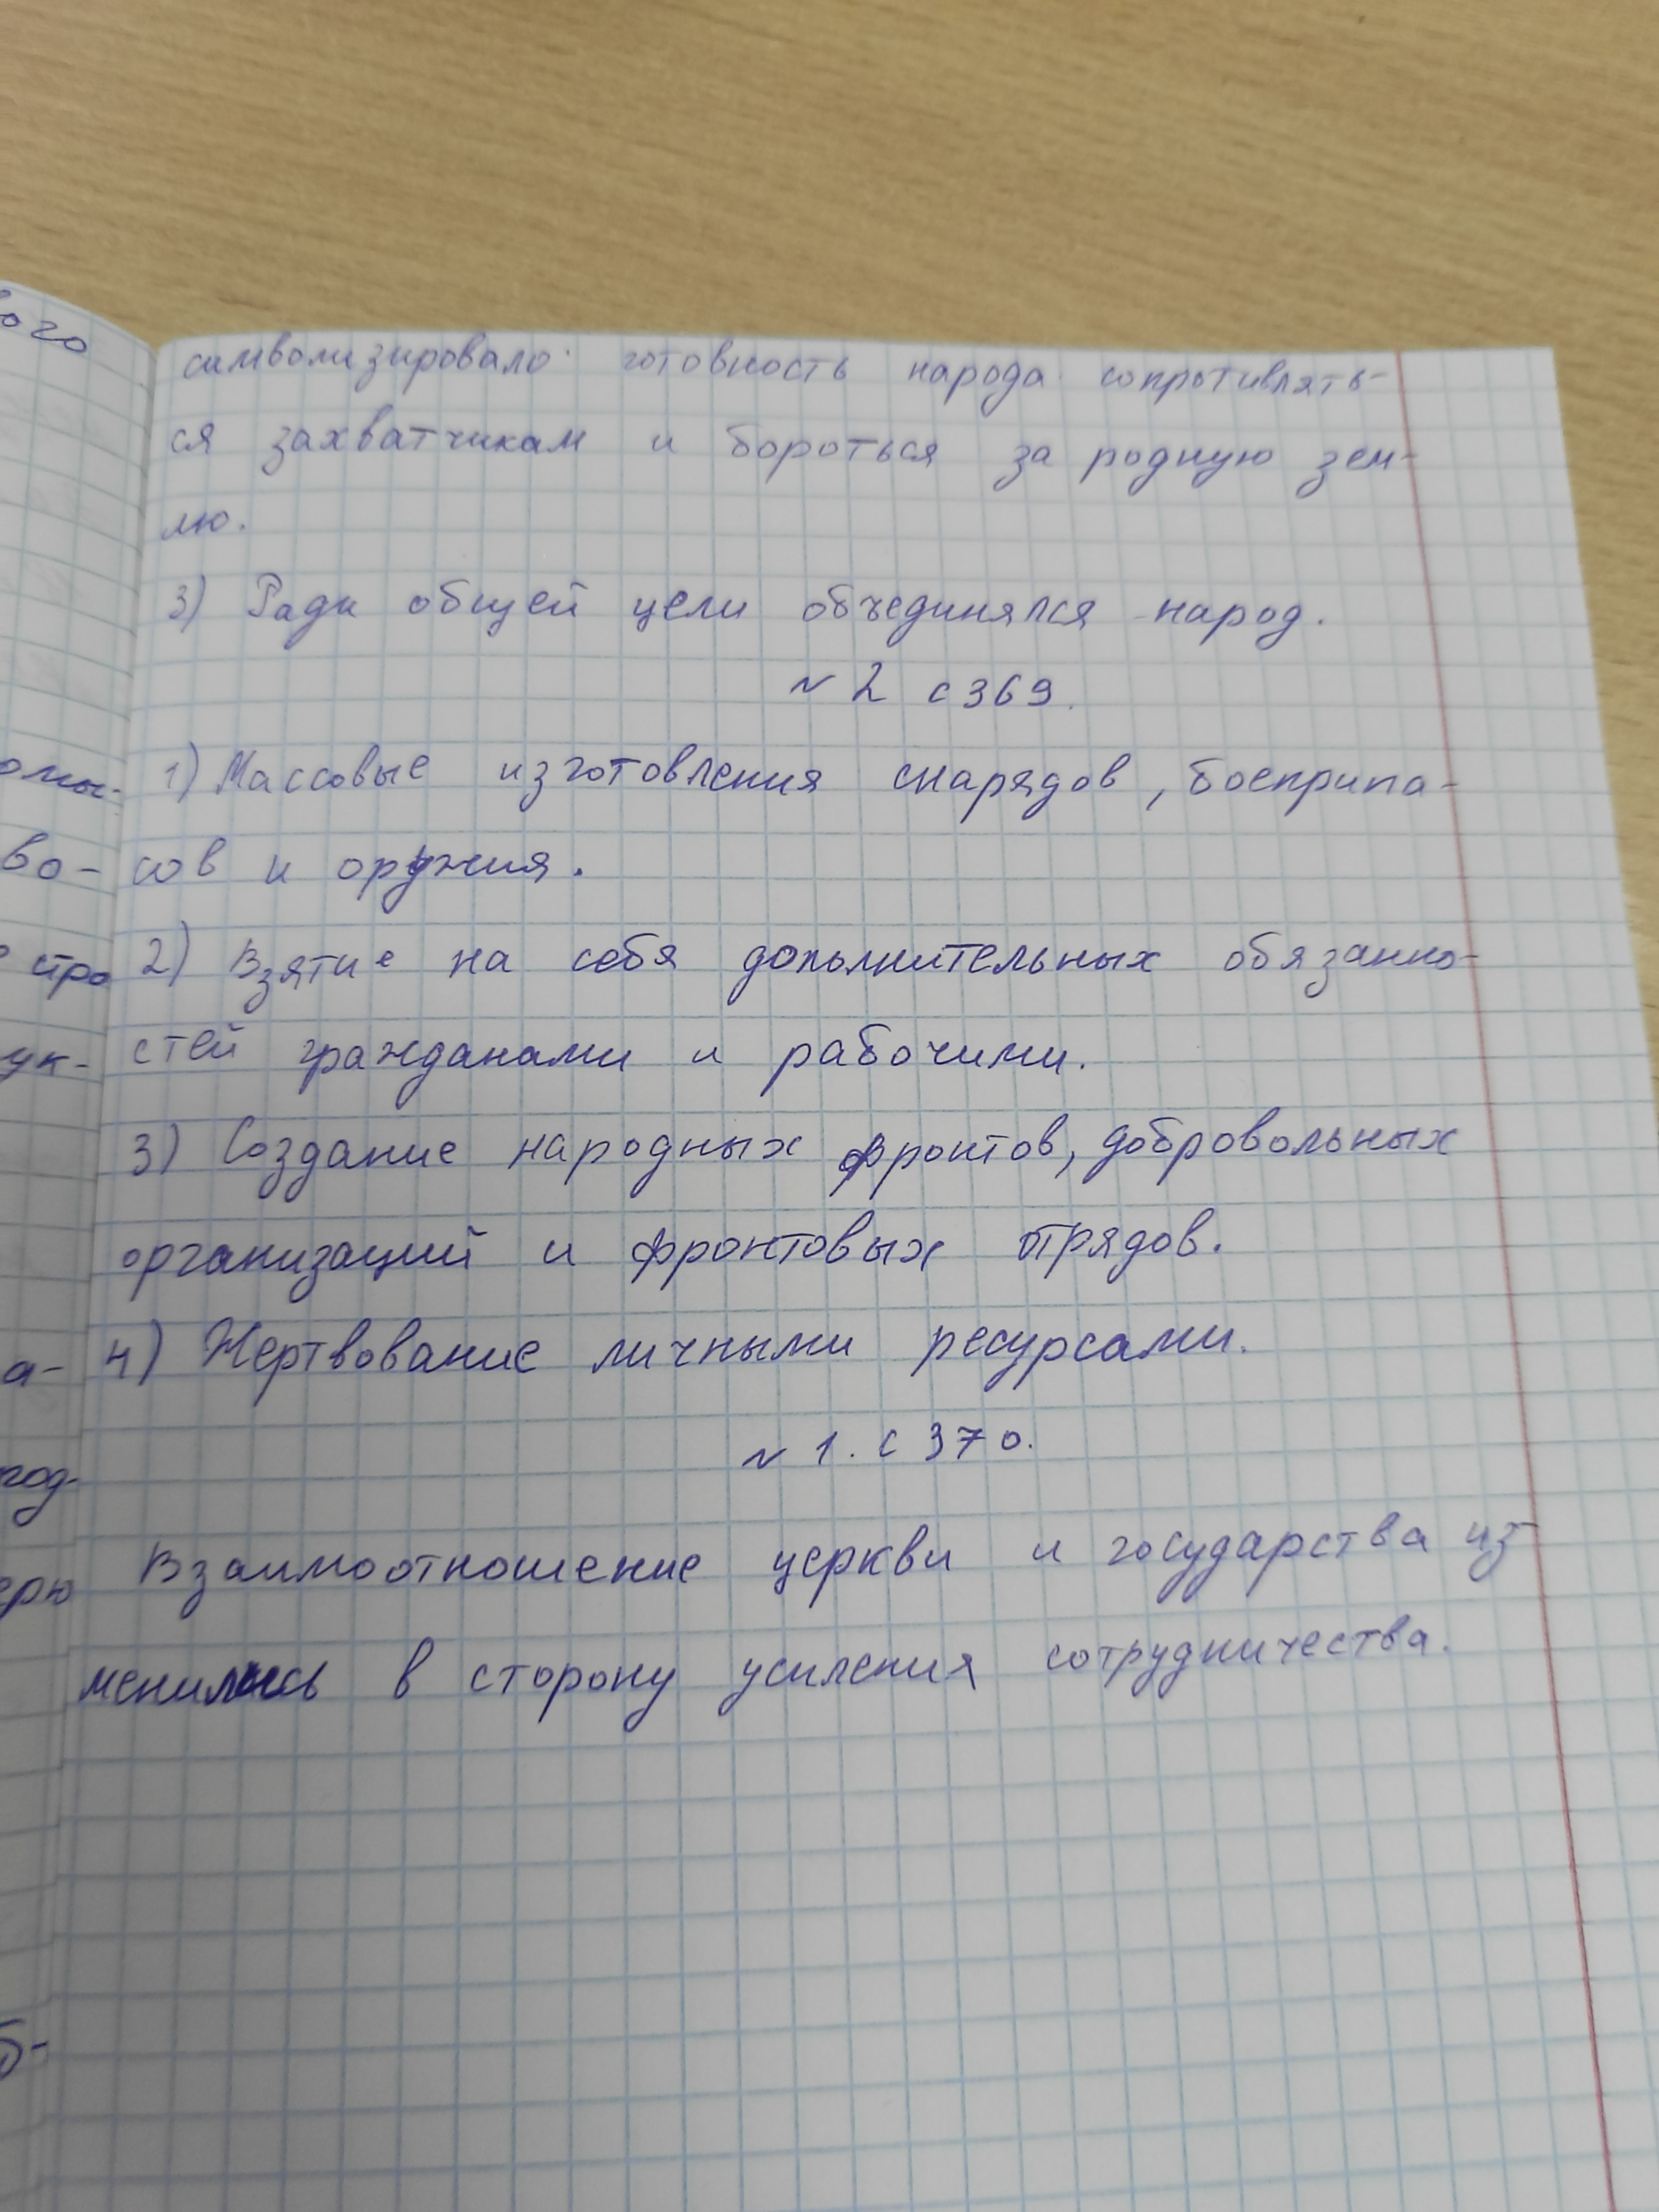 символизировало готовность народа сопротивлять-
ся захватчикам и бороться за родную зем-
лю.
3) Ради общей цели объединялся народ.
№ 2 с 369.
1) Массовые изготовления снарядов, боеприпа-
сов и оружия.
2) Взятие на себя дополнительных обязанно-
стей гражданами и рабочими.
3) Создание народных фронтов, добровольных
организаций и фронтовых отрядов.
4) Жертвование личными ресурсами.
№ 1. с 370.
Взаимоотношение церкви и государства из
менилось в сторону усиления сотрудничества.